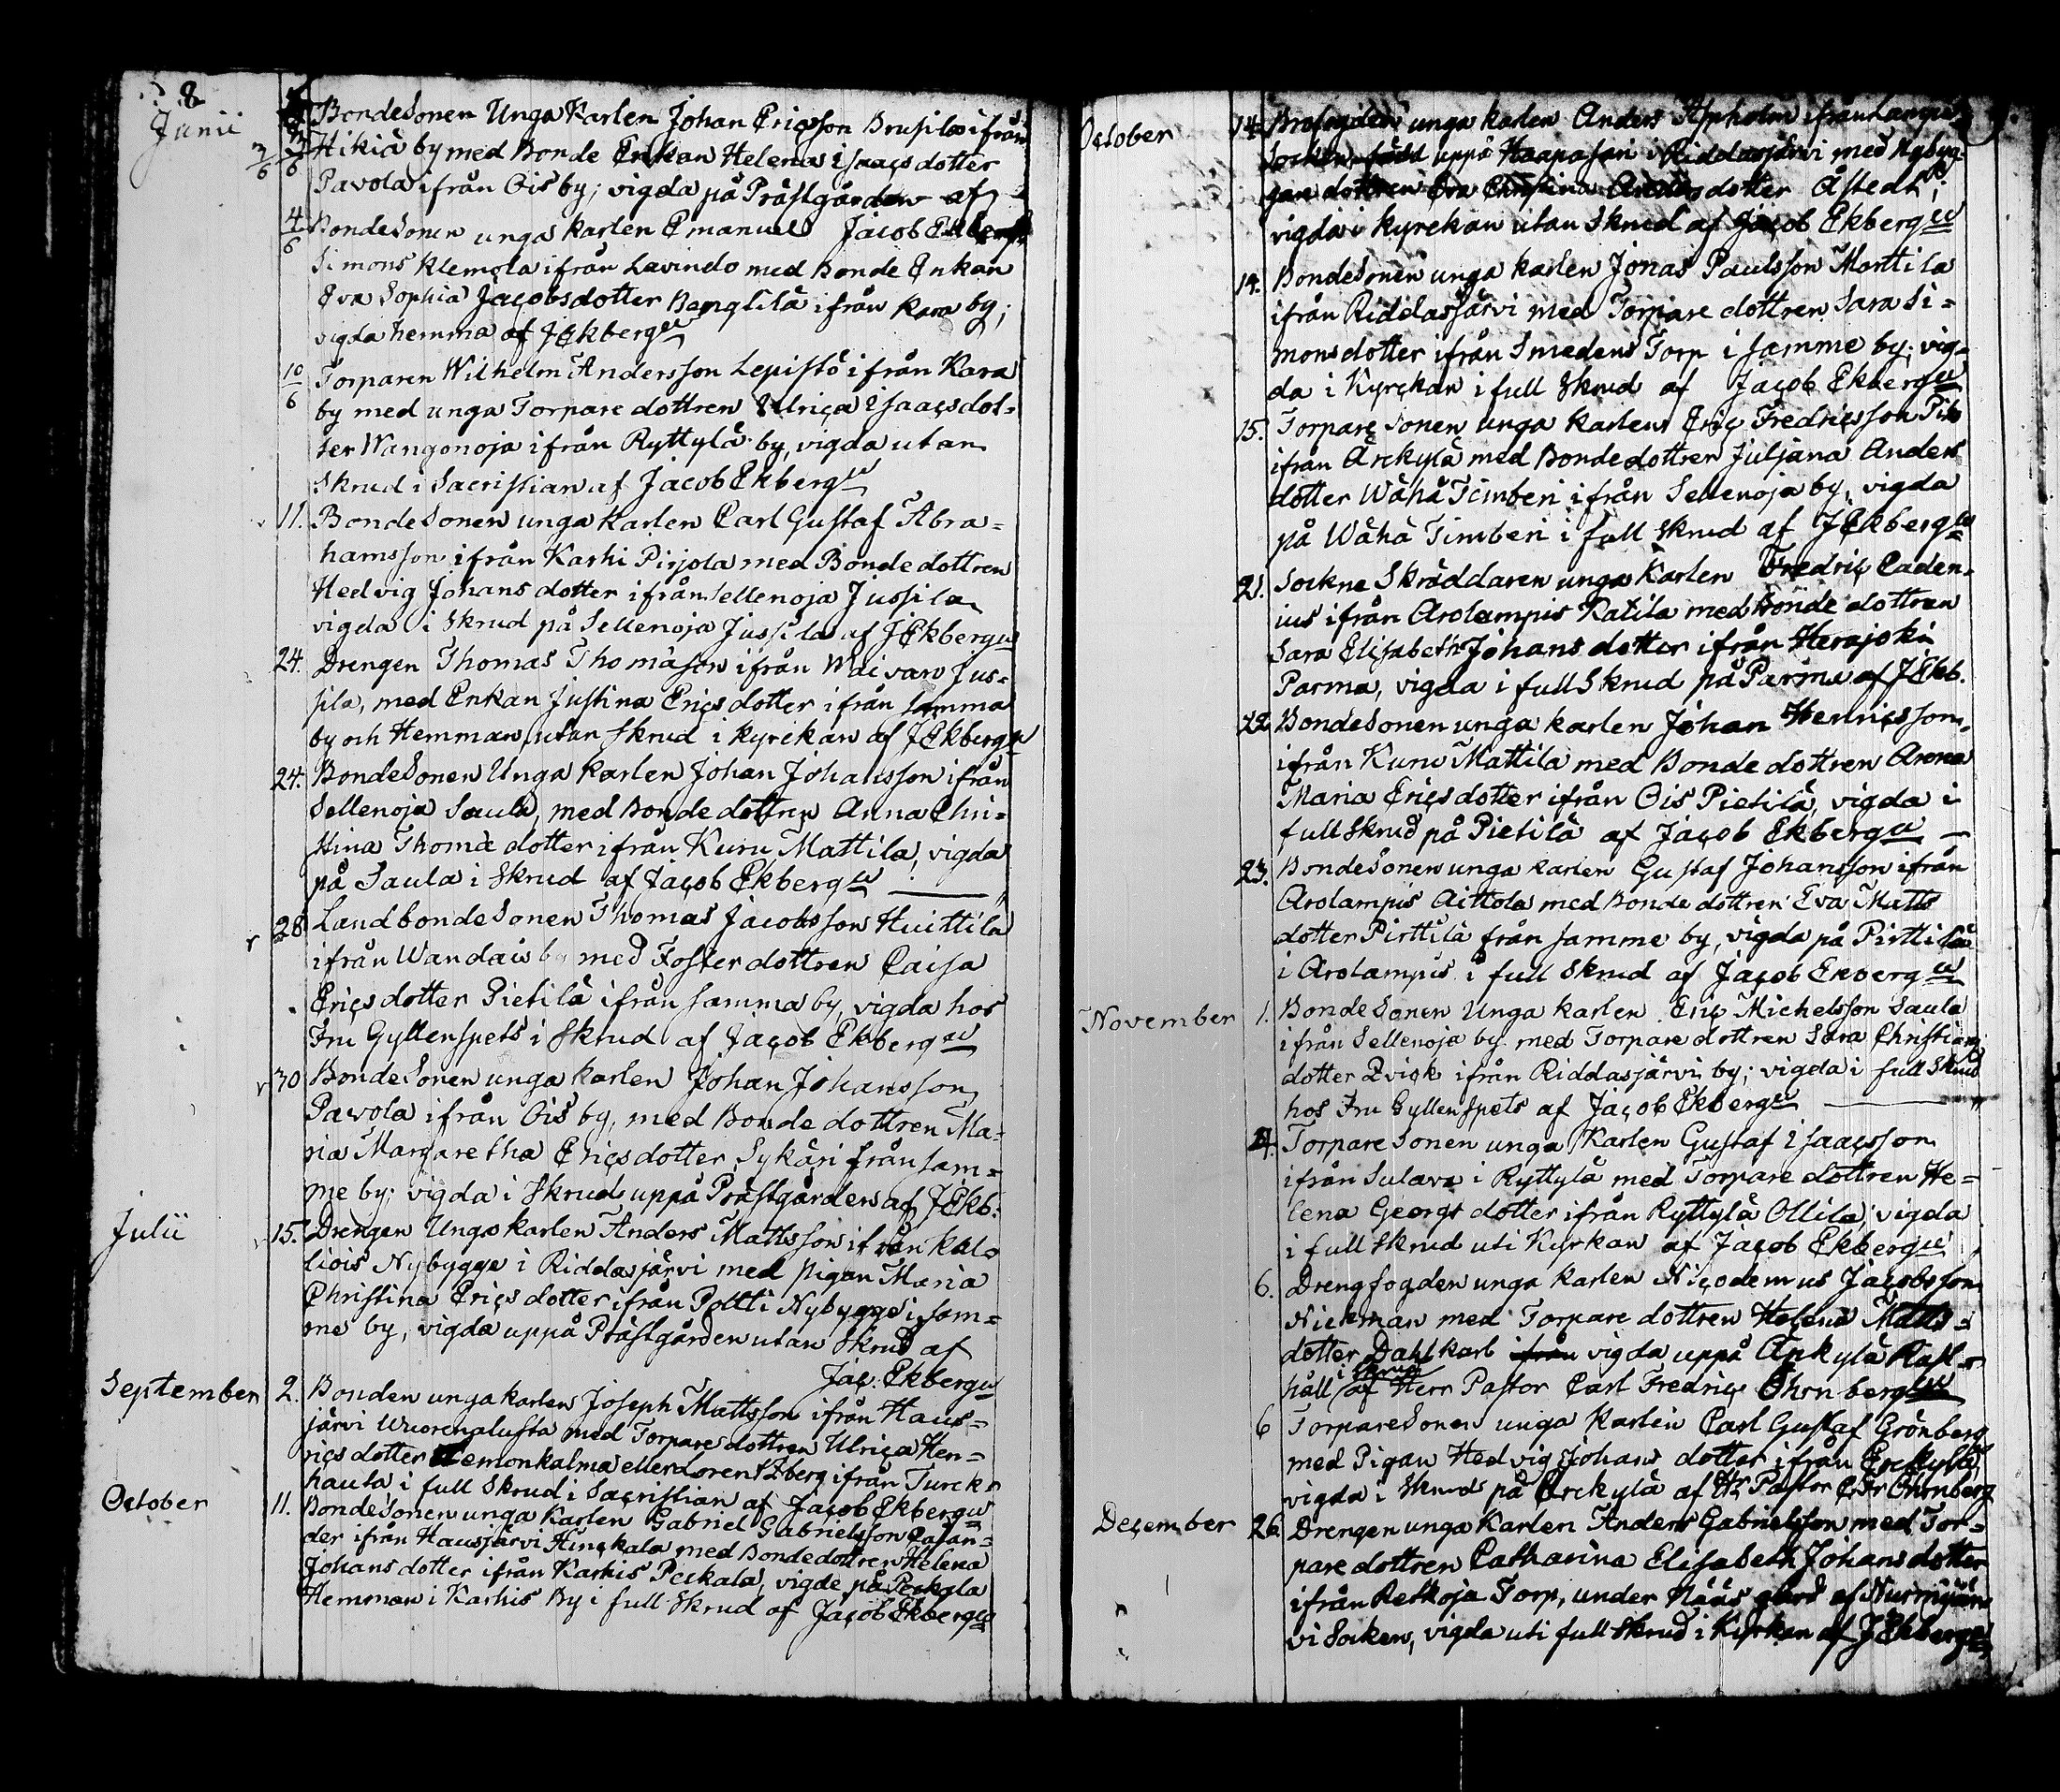 8
Junii
3/6
BondeSonen Unga Karlen Johan Ericsson Brusila ifrån
Hikiä by med Bonde Enkan Helena Isaacs dotter
Pavola ifrån Ois by; vigda på Prästgården af
4/6 BondeSonen unga karlen Emanuel Jacob Ekberg
Simons Klemola ifrån Lavindo med Bonde Enkan
Eva Sophia Jacobsdotter Bengtilä ifrån Kara by;
vigda hemma af JEkberg
10/6 Torparen Wilhelm Andersson Lepistö ifrån Kara
by med unga Torpare dottren Ulrica Isaacs dot-
ter Wangonoja ifrån Ryttylä by, vigda utan
Skrud i Sacristian af Jacob Ekberg
11. BondeSonen unga Karlen Carl Gustaf Abra-
hamsson ifrån Karhi Pirjola med Bonde dottren
Hedvig Johans dotter ifrån Sellenoja Jussila
vigda i Skrud på Sellenoja Jussila af JEkberg
24. Drengen Thomas Thomasson ifrån Waivaro Jus-
sila, med Enkan Justina Erics dotter ifrån samma
by och Hemman, utan Skrud i kyrckan af JEkberg
24. BondeSonen Unga karlen Johan Johansson ifrån
Sellenoja Saula, med Bonde dottren Anna Chri-
stina Thomæ dotter ifrån Kuru Mattila, vigda
på Saula i Skrud af Jacob Ekberg
28 Landbonde Sonen Thomas Jacobsson Huittila
ifrån Wandais by med Foster dottren Caisa
Erics dotter Pietilä ifrån samma by, vigda hos
Fru Gyllenspets i Skrud af Jacob Ekberg
30 BondeSonen unga karlen Johan Johansson
Pavola ifrån Ois by, med Bonde dottren Ma-
ria Margaretha Erics dotter Sykäri från sam-
me by; vigda i Skrud uppå Prästgården af JEkb:
Julii
15. Drengen Unga karlen Anders Mattsson ifrån Kal-
liois Nybygge i Riddasjärvi med pigan Maria
Christina Erics dotter ifrån Poltti Nybygge i sam-
me by, vigda uppå Prästgården utan Skrud af
Jac. Ekberg
September
2. Bonden unga karlen Joseph Mattsson ifrån Haus-
järvi Wuorenalusta med Torpare dottren Ulrica Hen-
rics dotter Lemonkalma eller Lorentzberg ifrån Turck-
hauta i full Skrud i Sacristian af Jacob Ekberg
October
11. BondeSonen unga Karlen Gabriel Gabrielsson Casan-
der ifrån Hausjärvi Hinckala med Bondedottren Helena
Johans dotter ifrån Karhis Peckala, vigde på Peckala
Hemman i Karhis By i full Skrud af Jacob Ekberg
9.
October
14. Brofogden unga karlen Anders Alpholm ifrån Lampis
Socken, född uppå Haapasari i Riddasjärvi med Nybyg-
gan dottren Eva Christina Anders dotter Åstedt;
vigda i kyrckan utan Skrud af Jacob Ekberg
14. BondeSonen unga karlen Jonas Paulsson Marttila
ifrån Riddasjärvi med Torpare dottren Sara Si-
mons dotter ifrån Smedens Torp i samme by; vig-
da i Kyrckan i full Skrud af Jacob Ekberg
15. Torpare Sonen unga karlen Eric Fredricsson
ifrån Arckylä med Bondedottren Juljana Anders
dotter Wähä Timberi ifrån Sellenoja by, vigda
på Wähä Timberi i full Skrud af JEkberg
21. Sockne Skräddaren unga Karlen Fredric Caden-
ius ifrån Arolampis Katila med Bonde dottren
Sara Elisabeth Johans dotter ifrån Herajoki
Parma, vigda i full Skrud på Parma af JEkb.
22 BondeSonen unga karlen Johan Henricsson
ifrån Kuru Mattila med Bonde dottren Anna
Maria Erics dotter ifrån Ois Pietilä, vigda i
full Skrud på Pietilä af Jacob Ekberg
23. BondeSonen unga karlen Gustaf Johansson ifrån
Arolampis Aittola med Bonde dottren Eva Matts
dotter Pirttilä från samme by, vigda på Pirttilä
i Arolampis i full Skrud af Jacob Ekberg
November
1. BondeSonen Unga karlen Eric Michelsson Saula
ifrån Sellenoja by med Torpare dottren Sara Christians
dotter Qvick ifrån Riddasjärvi by; vigda i full Skrud
hos Fru Gyllenspets af Jacob Ekberg
4. Torpare Sonen unga Karlen Gustaf Isaacsson
ifrån Sulava i Ryttylä med Torpare dottren He-
lena Georgs dotter ifrån Ryttylä Ollila, vigda
i full Skrud uti Kyrkan af Jacob Ekberg
6. Drengfogden unga karlen Nicodemus Jacobsson
Nickman med Torpare dottren Helena Matts-
dotter Dahlkarl ifrån vigda uppå Arckylä Rast-
håll i Skrud af Herr Pastor Carl Fredric Öhrnberg
6 TorpareSonen unga karlen Carl Gustaf Grönberg
med Pigan Hedvig Johans dotter ifrån Erckylä,
vigda i Skrud på Erckylä af Hr Pastor C Fr Öhrnberg
December
26. Drengen unga Karlen Anders Gabrielsson med Tor-
pare dottren Catharina Elisabeth Johans dotter
ifrån Retkoja Torp, under Nääs gård af Nurmijär-
vi Socken, vigda uti full Skrud i Kyrkan af JEkberg